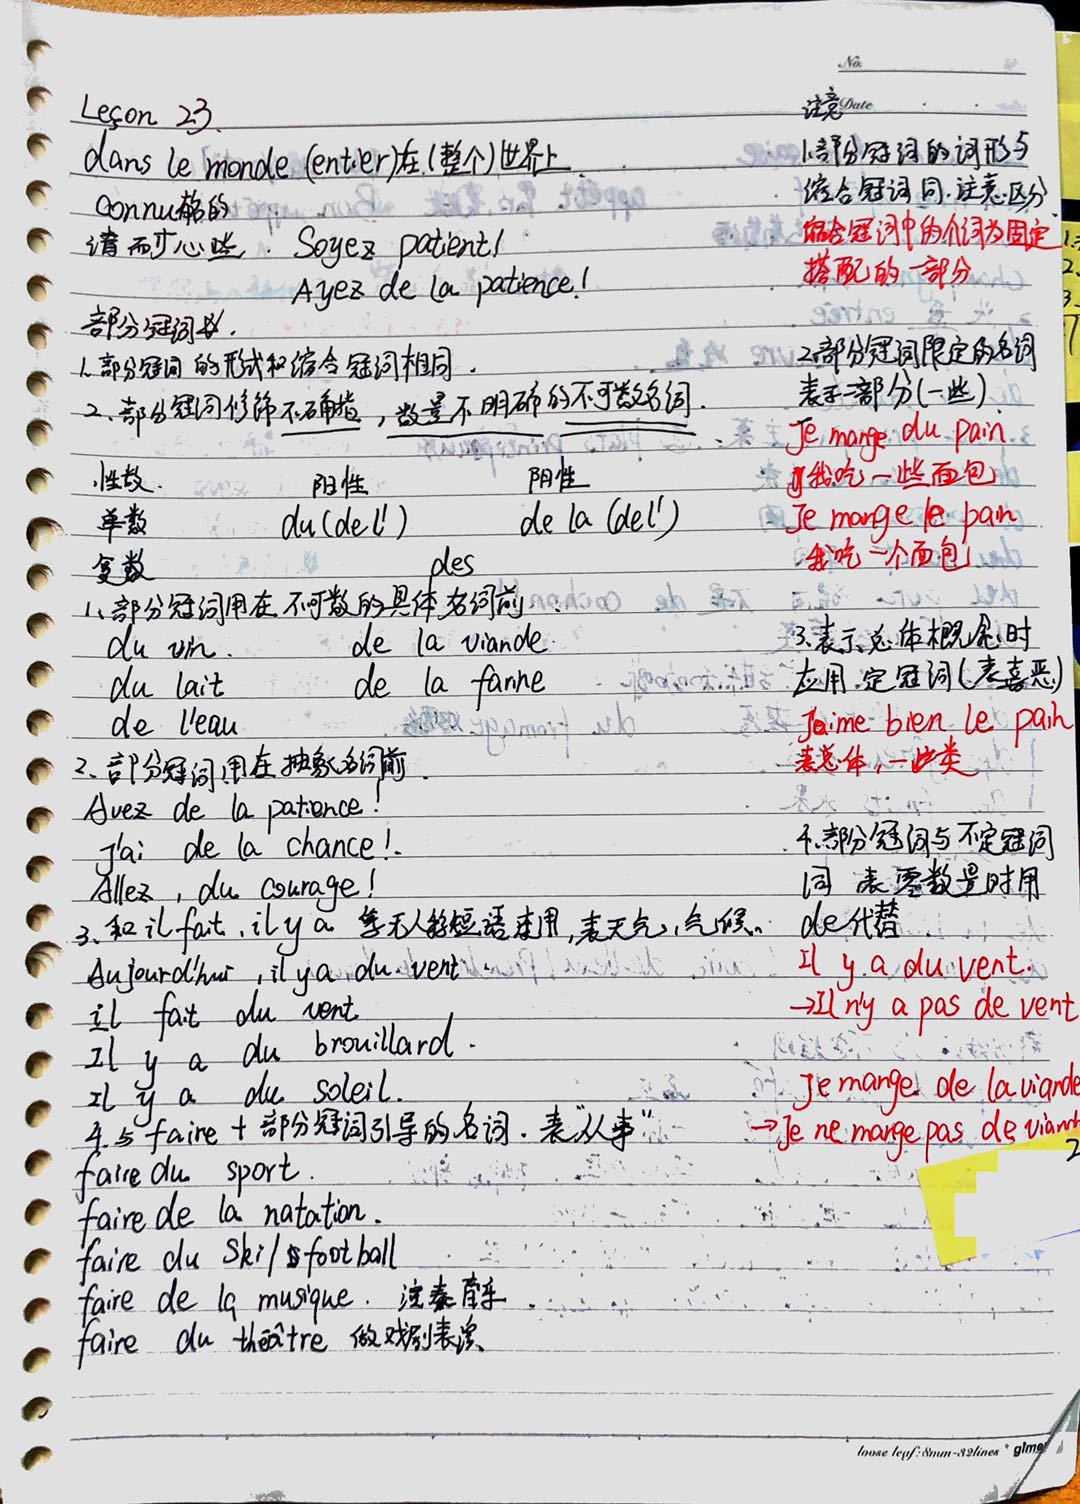 No.
Date
Leçon 23.
dans le monde (entier)在(整个)世界上
connu 著名的
请耐心些. Soyez patient!
Ayez de la patience!
部分冠词
1、部分冠词的形式和缩合冠词相同.
2、部分冠词修饰不确指,数量不明确的不可数名词.
性数. 阳性 阴性
单数 du(de l') de la (de l')
复数 des
1、部分冠词用在不可数的具体名词前
du vin. de la viande.
du lait de la farine
de l'eau
2、部分冠词用在抽象名词前
Avez de la patience!
J'ai de la chance!.
Allez, du courage!
3、和il fait, il y a 等无人称短语连用,表天气,气候.
Aujourd'hui, il y a du vent
il fait du vent
Il y a du brouillard.
Il y a du soleil.
4.与faire + 部分冠词引导的名词. 表"从事"
faire du sport.
faire de la natation.
faire du ski/football
faire de la musique.
faire du théâtre 做戏剧表演
注意
1.部分冠词的词形与
缩合冠词同.注意区分
缩合冠词中的介词为固定
搭配的一部分
2.部分冠词限定的名词
表示一部分(一些)
Je mange du pain
我吃一些面包
Je mange le pain
我吃一个面包
3.表示总体概念时
应用定冠词(表喜恶)
J'aime bien le pain
表总体,一些类
4.部分冠词与不定冠词
词 表零数量时用
de代替
Il y a du vent.
→Il n'y a pas de vent
Je mange de la viande
→Je ne mange pas de viande
loose leaf:8mm-32lines